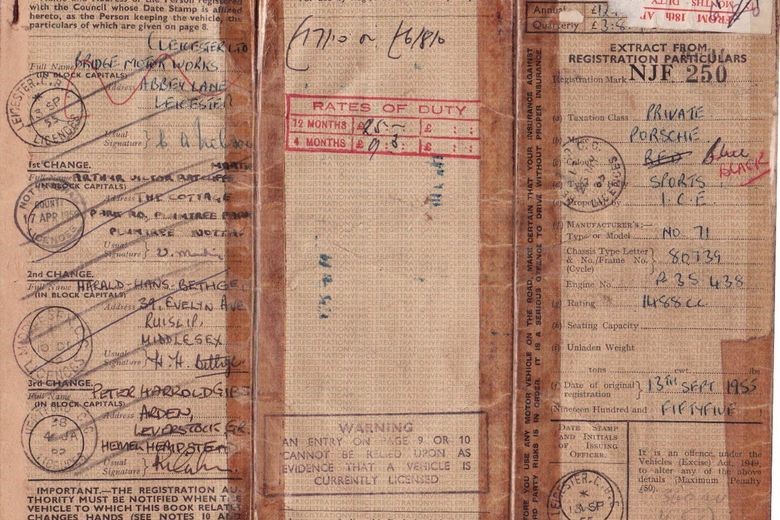 with the Council whose Date Stamp is affixed
hereto, as the Person keeping the vehicle, the
particulars of which are given on page 8.
(LEICESTER) LTD
Full Name BRIDGE MOTOR WORKS
(IN BLOCK CAPITALS)
Address ABBEY LANE
LEICESTER
Usual
Signature
LEICESTER
SP
55
LICENCES
1st CHANGE.
Full Name ARTHUR VICTOR
(IN BLOCK CAPITALS)
Address THE COTTAGE
PARK RD, PLUMTREE PARK
PLUMTREE NOTTS
Usual
Signature
17 APR 1959
2nd CHANGE.
Full Name HARALD-HANS-BETHGE
(IN BLOCK CAPITALS)
Address 39, EVELYN AVE
RUISLIP,
MIDDLESEX
Usual
Signature H. H. Bethge
3rd CHANGE.
Full Name PETER HARROLD
(IN BLOCK CAPITALS)
Address ARDEN,
LEVERSTOCK GR.
HEMEL HEMPSTEAD
Usual
Signature
IMPORTANT.—THE REGISTRATION AU-
THORITY MUST BE NOTIFIED WHEN THE
VEHICLE TO WHICH THIS BOOK RELATES
CHANGES HANDS (SEE NOTES 10 AND
£17/10 or £6/8/0
RATES OF DUTY
12 MONTHS £ £ : :
4 MONTHS £ £ : :
WARNING
AN ENTRY ON PAGE 9 OR 10
CANNOT BE RELIED UPON AS
EVIDENCE THAT A VEHICLE IS
CURRENTLY LICENSED
YOU USE ANY MOTOR VEHICLE ON THE ROAD, MAKE CERTAIN THAT YOUR INSURANCE AGAINST
THIRD PARTY RISKS IS IN ORDER. IT IS A SERIOUS OFFENCE TO DRIVE WITHOUT PROPER INSURANCE
Annual
Quarterly
FROM 18th AP
MONTHS DUTY
EXTRACT FROM
REGISTRATION PARTICULARS
Registration Mark NJF 250
(a) Taxation Class PRIVATE
PORSCHE
RED Blue
BLACK
SPORTS
Propelled by I.C.E
(f) MANUFACTURER'S:—
Type or Model NO 71
Chassis Type Letter
& No./Frame No. 80739
(Cycle)
Engine No. P 35 438
(g) Rating 1488 CC
(h) Seating Capacity
(i) Unladen Weight
tons cwt. lbs
(j) Date of original
registration 13TH SEPT 1955
(Nineteen Hundred and FIFTYFIVE)
DATE STAMP
AND INITIALS
OF ISSUING
OFFICER.
It is an offence under the
Vehicles (Excise) Act, 1949,
to alter any of the above
details (Maximum Penalty
£50).